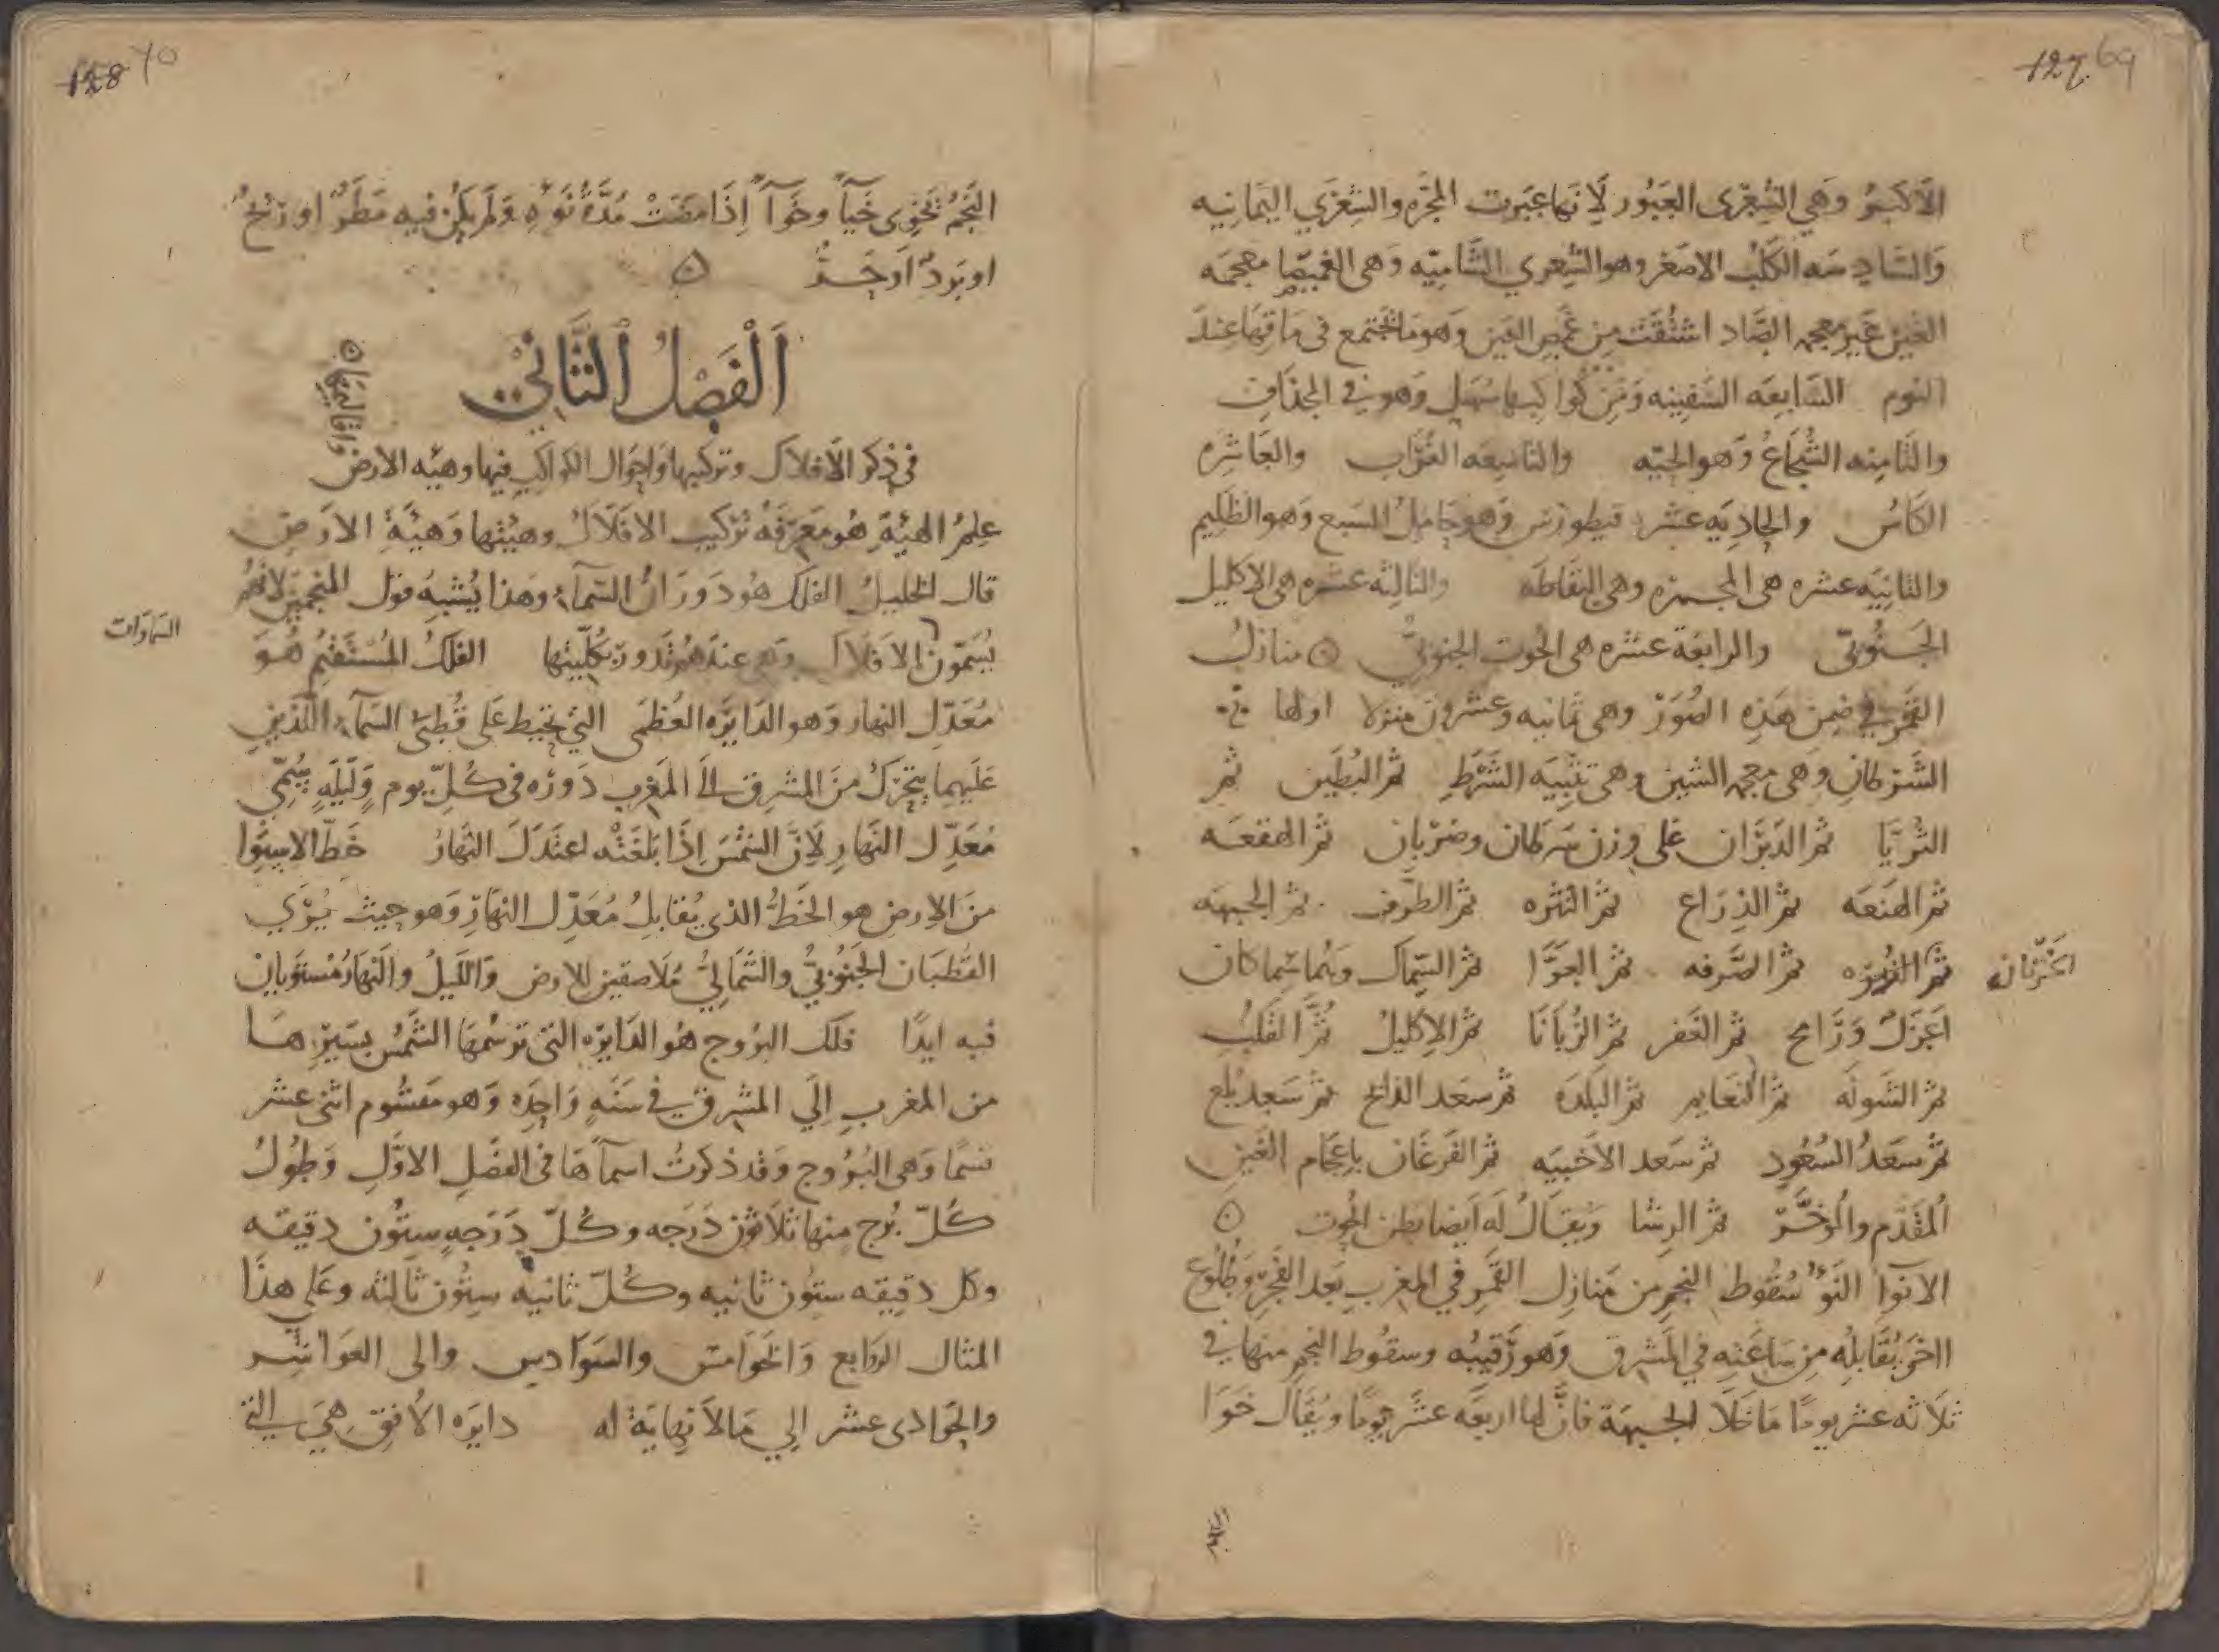 127 69
الاكبر وهي الشِعْرى العَبُور لانها عبَرت المجَرّه والشِعْرَي اليَمانيه
والسَّادِسَه الكَلْبُ الاصغر وهو الشِعري الشَّامِيّه وَهى الغميصَا معجمَه
الغين غير معجمه الصَّاد اشتُقّت مِن غَمَصِ العَين وَهو مَا يجتمع فى مَاقِهَا عِندَ
النوم السَّابِعَه السَّفِينه ومن كواكبها سُهَيل وَهو في المجذَاف
والثّامِنه الشُجَاعُ وَهو الحيّه والتاسِعَه الغُرَاب والعَاشِره
الكَاسُ والحادِيَه عشر قيطورس وَهو حَامِلُ السَبع وَهو الظَلِيم
والثانِيَه عشره هى المجمره وهى النفّاطه والثالِثه عشره هى الاكليل
الجَنُوبى والرابعَة عشره هى الحُوت الجنوبيُّ ۞ منازلُ
القَمَر في ضمن هَذِه الصُوَرْ وهى ثمانيه وعشرون منزلا اولها
الشَّرَطانِ وَهى معجمه الشين وهى تثنِيَه الشَرَطِ ثم البُطَين ثم
الثُريّا ثم الدَبَرَان عَلى وزن سَرَطان وضَرَبان ثم الهقعَه
ثم الهَنعَه ثم الذِرَاع ثم النَثره ثم الطَرْف ثم الجَبهَه
ثم الزُبره ثم الصَرفه ثم العَوَّا ثم السِمَاك وَهُما سِماكان
الخَرَتان
اعَزَلُ وَرَامح ثم الغَفر ثم الزُبَانَا ثم الاِكليلُ ثُمَّ القَلبُ
ثم الشَولَه ثم النَعَايم ثم البَلدَه ثم سعَد الذابح ثم سَعد بُلَع
ثم سَعَدُ السُعُودِ ثم سَعد الاَخبيَه ثم الفَرغَان باِعجَام الغَين
المُقَدَّم والمُوخَّر ثم الرِشا وَيُقالُ لَهُ اَيضا بَطن الحُوت ۞
الانوآ النَوْءُ سُقُوط النجم من مَنازِل القَمَر في المغرب بَعد الفَجر وَطُلوع
اخر يُقَابلُه مِن سَاعَتِه في المَشرِق وَهو رَقيبُه وسقُوط النجم منها في
ثلاثه عشر يومًا مَا خَلا الجَبهَة فانَّ لها اربَعَه عشَر يومًا ويُقَال خَوَا
128 70
النَجمُ يَخوِى خَيّاً وخَوآءً اِذَا مضَتْ مُدَّةُ نَوئِه وَلَم يَكُن فيه مَطَرٌ او ريحٌ
او بَردٌ اَو حَرٌّ ۞
اَلْفَصْلُ الثَّانِيْ
فى ذِكر الاَفلاَك وتركيبها وَاحوَال الكواكب فيها وهيئه الارض
واقَاليمهَا ۞
عِلمُ الهيَئَةِ هُو مَعرِفَةُ تركيب الافلَاك وهيئتها وَهيئَة الارَض
قال الخليلُ الفلَك هُو دَوَرَانُ السَمآءِ وَهذا يُشبِهُ قول المنجمين لانهُم
يُسَمّون الافلاك وَهى عندَهُم تَدور بكُلِّيتها الفلَكُ المُسْتَقيمُ هُوَ
السَمَاوَات
مُعَدّل النهار وَهو الدَايرَه العُظمَى التي تحيط عَلى قُطبَي السَمآءِ اللّذين
عَليهما يتحرّكُ مِنَ المشرِق الَى المَغرب دَورَه فى كُلّ يوم وَلَيلَهٍ سُمِّي
مُعَدِّل النَهارِ لاَنَّ الشمسَ اِذَا بَلَغَتْه اعتَدَلَ النهَارُ خَطّ الاستِوا
منَ الارض هو الخَطُّ الذى يُقابلُ مُعَدِّل النهَارِ وَهو حيث يُرَى
القُطبَان الجَنُوبيُّ والشَّمَاليُّ مُلَاصقين للارض وَالليَلُ والنَهارُ مُستوَيانْ
فيه ابدًا فلَك البُروج هُو الدَايرَه التى تَرسُمهَا الشَّمسُ بسَيرِهَا
من المغرب اِلَي المشرق في سَنَهٍ وَاحِدَه وَهو مَقسُوم اثنى عشر
قسمًا وَهى البُرُوج وَقد ذكرتُ اسمآءَهَا فى الفصْلِ الاوَّلِ وَطُولُ
كُلّ بُرج منها ثلاَثون دَرَجه وكُلّ دَرَجهٍ سِتُون دقيقه
وكل دقيقه ستون ثانيه وكُلّ ثانيه ستُون ثالثه وعَلي هذَا
المثال الروَابع وَالخوَامس والسوَادس والى العوَاشر
والحوَادى عشر اِلي مَا لَا نهايَة له دايرَه الاُفق هِيَ التي